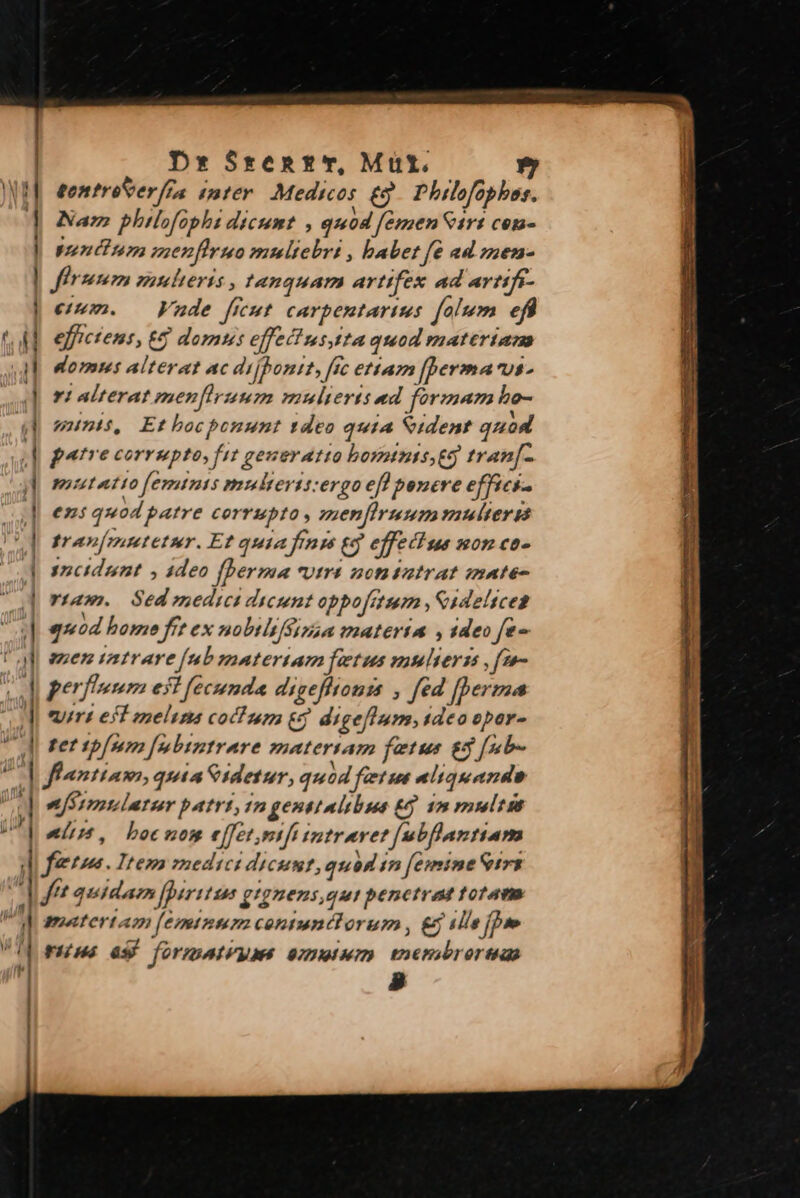 De Secret. Mul. 17
controverſia inter Medicos & Philoſophos.
Nam philoſophi dicunt, quod ſemen viri con-
iunctum menſtruo muliebri, habet ſe ad men-
ſtruum mulieris, tanquam artifex ad artifi-
cium. Vnde ſicut carpentarius ſolum eſt
efficiens, & domus effectus, ita quod materiam
domus alterat ac diſponit, ſic etiam ſperma vi-
ri alterat menſtruum mulieris ad formam ho-
minis, Et hoc ponunt ideo quia vident quòd
patre corrupto, fit generatio hominis, & tranſ-
mutatio ſeminis mulieris: ergo eſt ponere effici-
ens quòd patre corrupto, menſtruum mulieris
tranſmutetur. Et quia finis & effectus non co-
incidunt, ideo ſperma viri non intrat mate-
riam. Sed medici dicunt oppoſitum, videlicet
quòd homo fit ex nobiliſſima materia, ideo ſe-
men intrare ſub materiam fœtus mulieris, ſu-
perfluum eſt ſecundæ digeſtionis, ſed ſperma
viri eſt melius coctum & digeſtum, ideo opor-
tet ipſum ſubintrare materiam fœtus & ſub-
ſtantiam, quia videtur, quòd fœtus aliquando
aſſimulatur patri, in genitalibus & in multis
aliis, hoc non eſſet, niſi intraret ſubſtantiam
fœtus. Item medici dicunt, quòd in ſemine viri
fit quidam ſpiritus gignens, qui penetrat totam
materiam ſeminum coniunctorum, & ille ſpi-
ritus eſt formativus omnium membrorum
B